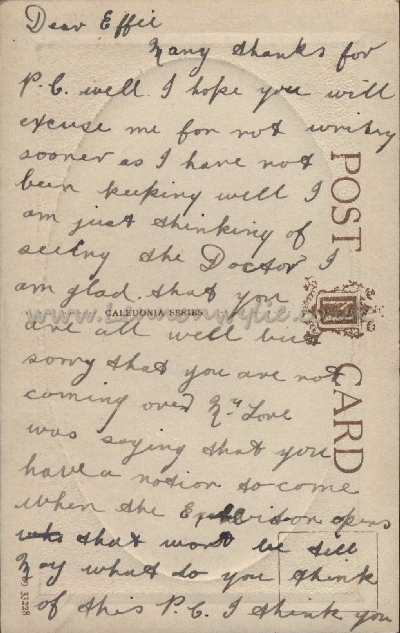 Dear Effie
Many thanks for
P.C. well I hope you will
excuse me for not writing
sooner as I have not
been keeping well I
am just thinking of
seeing the Doctor I
am glad that you
CALEDONIA SERIES
are all well but
sorry that you are not
coming over Mrs Love
was saying that you
have a notion to come
when the Exhibition opens
that wont be till
May what do you think
of this P.C. I think you
POST CARD
33228